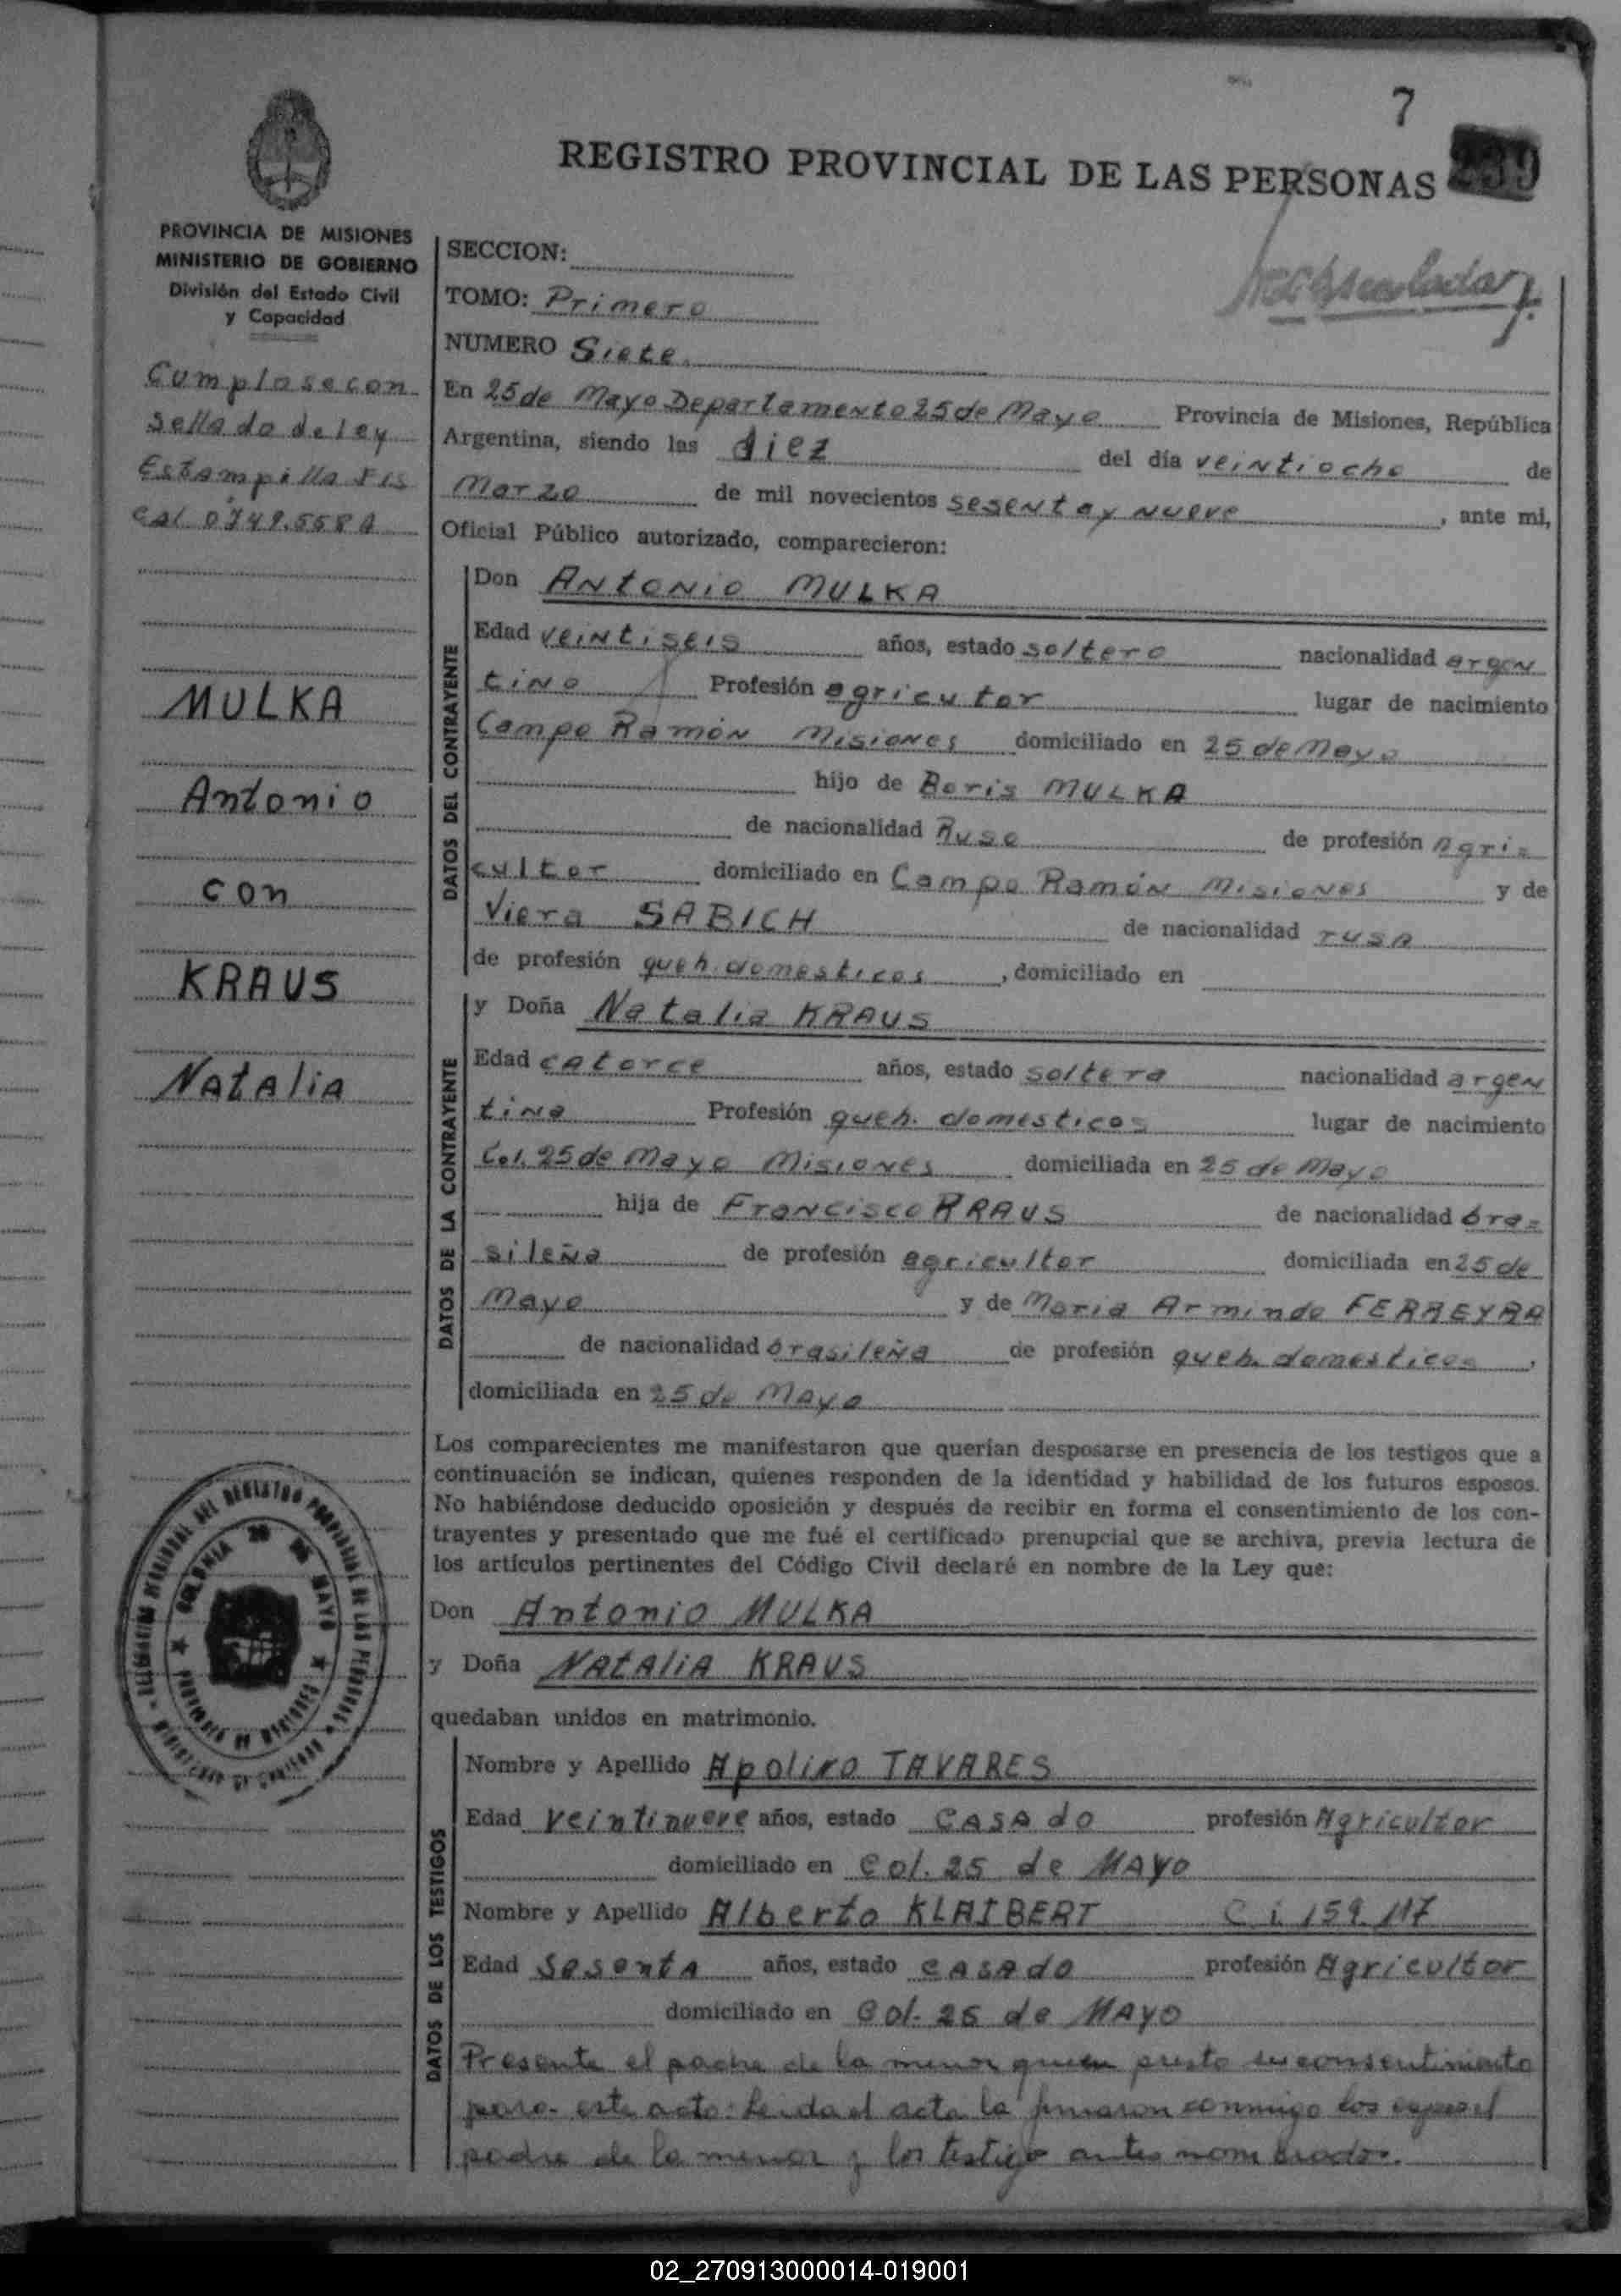 7
REGISTRO PROVINCIAL DE LAS PERSONAS 239
PROVINCIA DE MISIONES
MINISTERIO DE GOBIERNO
División del Estado Civil
y Capacidad
Cumplase con
sellado de ley
Estampilla Fis
cal 0749.558A
MULKA
Antonio
con
KRAUS
Natalia
SECCION:
TOMO: Primero
NUMERO Siete
En 25 de Mayo Departamento 25 de Mayo Provincia de Misiones, República
Argentina, siendo las diez del día veintiocho de
Marzo de mil novecientos sesenta y nueve, ante mi,
Oficial Público autorizado, comparecieron:
DATOS DEL CONTRAYENTE
Don Antonio MULKA
Edad veintiseis años, estado soltero nacionalidad argen
tino Profesión agricutor lugar de nacimiento
Campo Ramón Misiones domiciliado en 25 de Mayo
hijo de Boris MULKA
de nacionalidad Ruso de profesión Agri=
cultor domiciliado en Campo Ramón Misiones y de
Viera SABICH de nacionalidad rusa
de profesión queh. domesticos, domiciliado en
DATOS DE LA CONTRAYENTE
y Doña Natalia KRAUS
Edad catorce años, estado soltera nacionalidad argen
tina Profesión queh. domesticos lugar de nacimiento
Col. 25 de Mayo Misiones domiciliada en 25 de Mayo
hija de Francisco KRAUS de nacionalidad bra=
sileña de profesión agricultor domiciliada en 25 de
Mayo y de Maria Arminda FERREYRA
de nacionalidad brasileña de profesión queh. domesticos,
domiciliada en 25 de Mayo
Los comparecientes me manifestaron que querían desposarse en presencia de los testigos que a
continuación se indican, quienes responden de la identidad y habilidad de los futuros esposos.
No habiéndose deducido oposición y después de recibir en forma el consentimiento de los con-
trayentes y presentado que me fué el certificado prenupcial que se archiva, previa lectura de
los artículos pertinentes del Código Civil declaré en nombre de la Ley que:
Don Antonio MULKA
y Doña NATALIA KRAUS
quedaban unidos en matrimonio.
DATOS DE LOS TESTIGOS
Nombre y Apellido Apoliro TAVARES
Edad Veintinueve años, estado CASAdo profesión Agricultor
domiciliado en Col. 25 de MAYO
Nombre y Apellido Alberto KLAIBERT C i 159.117
Edad Sesenta años, estado CASAdo profesión Agricultor
domiciliado en Col. 25 de MAYO
Presente el padre de la menor quien presto su consentimiento
para este acto. Leida el acta la firmaron conmigo los esposos el
padre de la menor y los testigo antes nombrados.
COLONIA 25 DE MAYO
PROVINCIA DE MISIONES
02_270913000014-019001